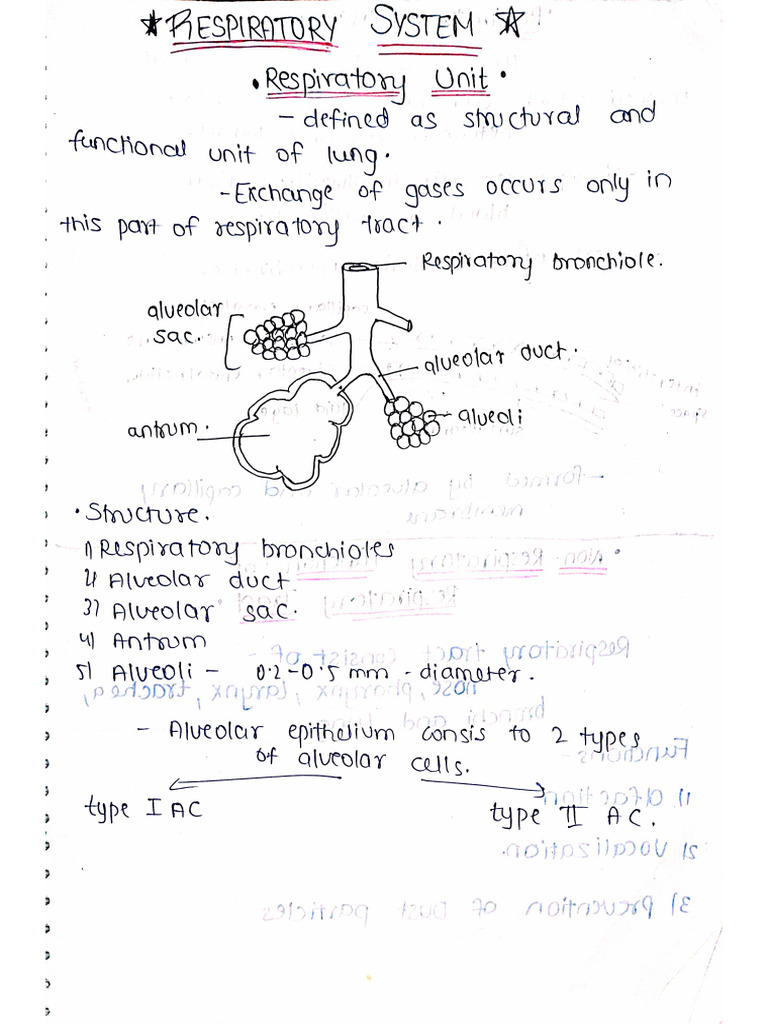 ★ RESPIRATORY SYSTEM ☆
• Respiratory Unit •
- defined as structural and
functional unit of lung.
- Exchange of gases occurs only in
this part of respiratory tract.
Respiratory bronchiole.
alveolar
sac.
alveolar duct.
alveoli
antrum.
• Structure.
1) Respiratory bronchioles
2) Alveolar duct
3) Alveolar sac.
4) Antrum
5) Alveoli - 0.2-0.5 mm - diameter.
- Alveolar epithelium consis to 2 types
of alveolar cells.
type I AC
type II AC.